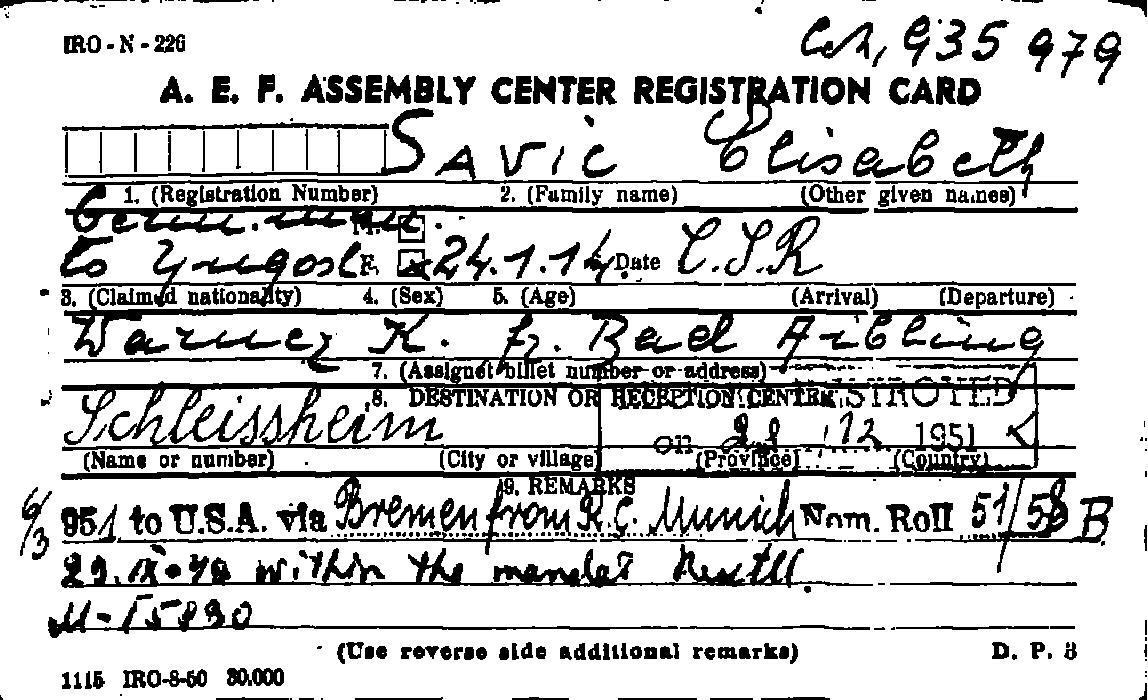 IRO - N - 226
935 979
A. E. F. ASSEMBLY CENTER REGISTRATION CARD
SAVIC Elisabeth
1. (Registration Number) 2. (Family name) (Other given names)
M.
to Yugosl. F. x 24.1.14. Date C.S.R
3. (Claimed nationality) 4. (Sex) 5. (Age) (Arrival) (Departure)
K. fr. Bad Aibling
7. (Assigned billet number or address)
8. DESTINATION OR RECEPTION CENTER
Schleissheim
on 12 1951
(Name or number) (City or village) (Province) (Country)
9. REMARKS
6/3 951 to U.S.A. via Bremen from R.C. Munich Nom. Roll 51/58 B
within the mandat Resettl.
M-15830
(Use reverse side additional remarks) D. P. 3
1115 IRO-8-50 30.000